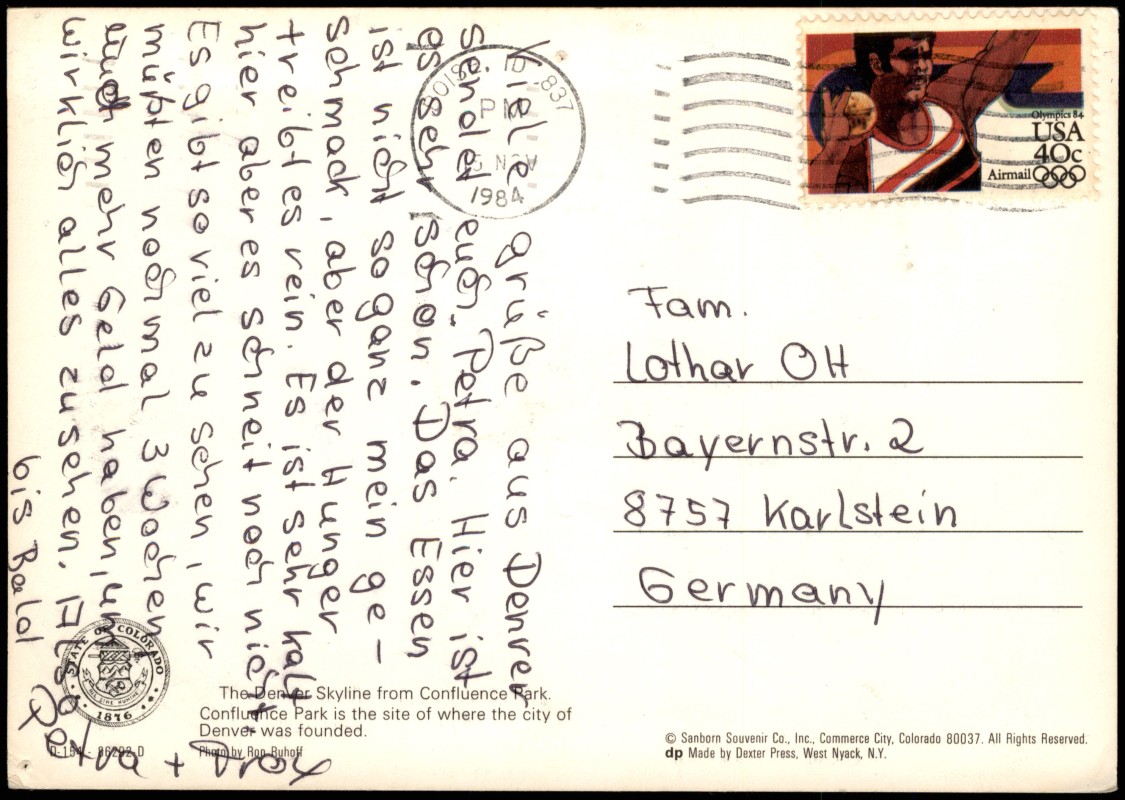 Viele grüße aus Denver
sendet euch Petra. Hier ist
es sehr schön. Das Essen
ist nicht so ganz mein ge-
schmack, aber der Hunger
treibt es rein. Es ist sehr kalt
hier aber es schneit noch nicht.
Es gibt so viel zu sehen, wir
müßten noch mal 3 Wochen
und mehr Geld haben, um
wirklich alles zu sehen. Also
bis Bald
Petra +
837
PM
NOV
1984
Olympics 84
USA
40c
Airmail
Fam.
Lothar Ott
Bayernstr. 2
8757 Karlstein
Germany
STATE OF COLORADO
1876
The Denver Skyline from Confluence Park.
Confluence Park is the site of where the city of
Denver was founded.
D-154 - 86292-D Photo by Ron Ruhoff
© Sanborn Souvenir Co., Inc., Commerce City, Colorado 80037. All Rights Reserved.
dp Made by Dexter Press, West Nyack, N.Y.